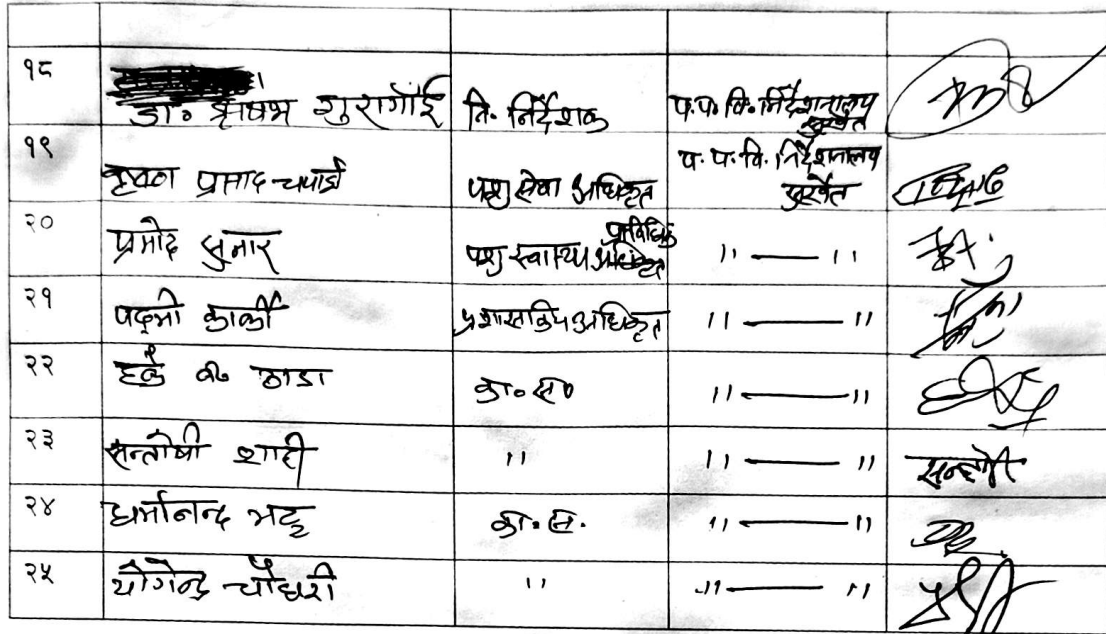 १८
डा. ऋषभ गुरागाँई नि. निर्देशक प.प. वि. निर्देशनालय सुर्खेत
१९
कृष्ण प्रसाद चपाई पशु सेवा अधिकृत प.प.वि. निर्देशनालय सुर्खेत
२०
प्रमोद कुमार पशु स्वास्थ्य प्राविधिक " —— "
२१
पद्मी कार्की प्रशासकिय अधिकृत " —— "
२२
हर्क ब० ठाडा का.स० " —— "
२३
सन्तोषी शाही " " —— " सन्तोषी
२४
धर्मानन्द भट्ट का.स. " —— "
२५
योगेन्द्र चौधरी " " —— "